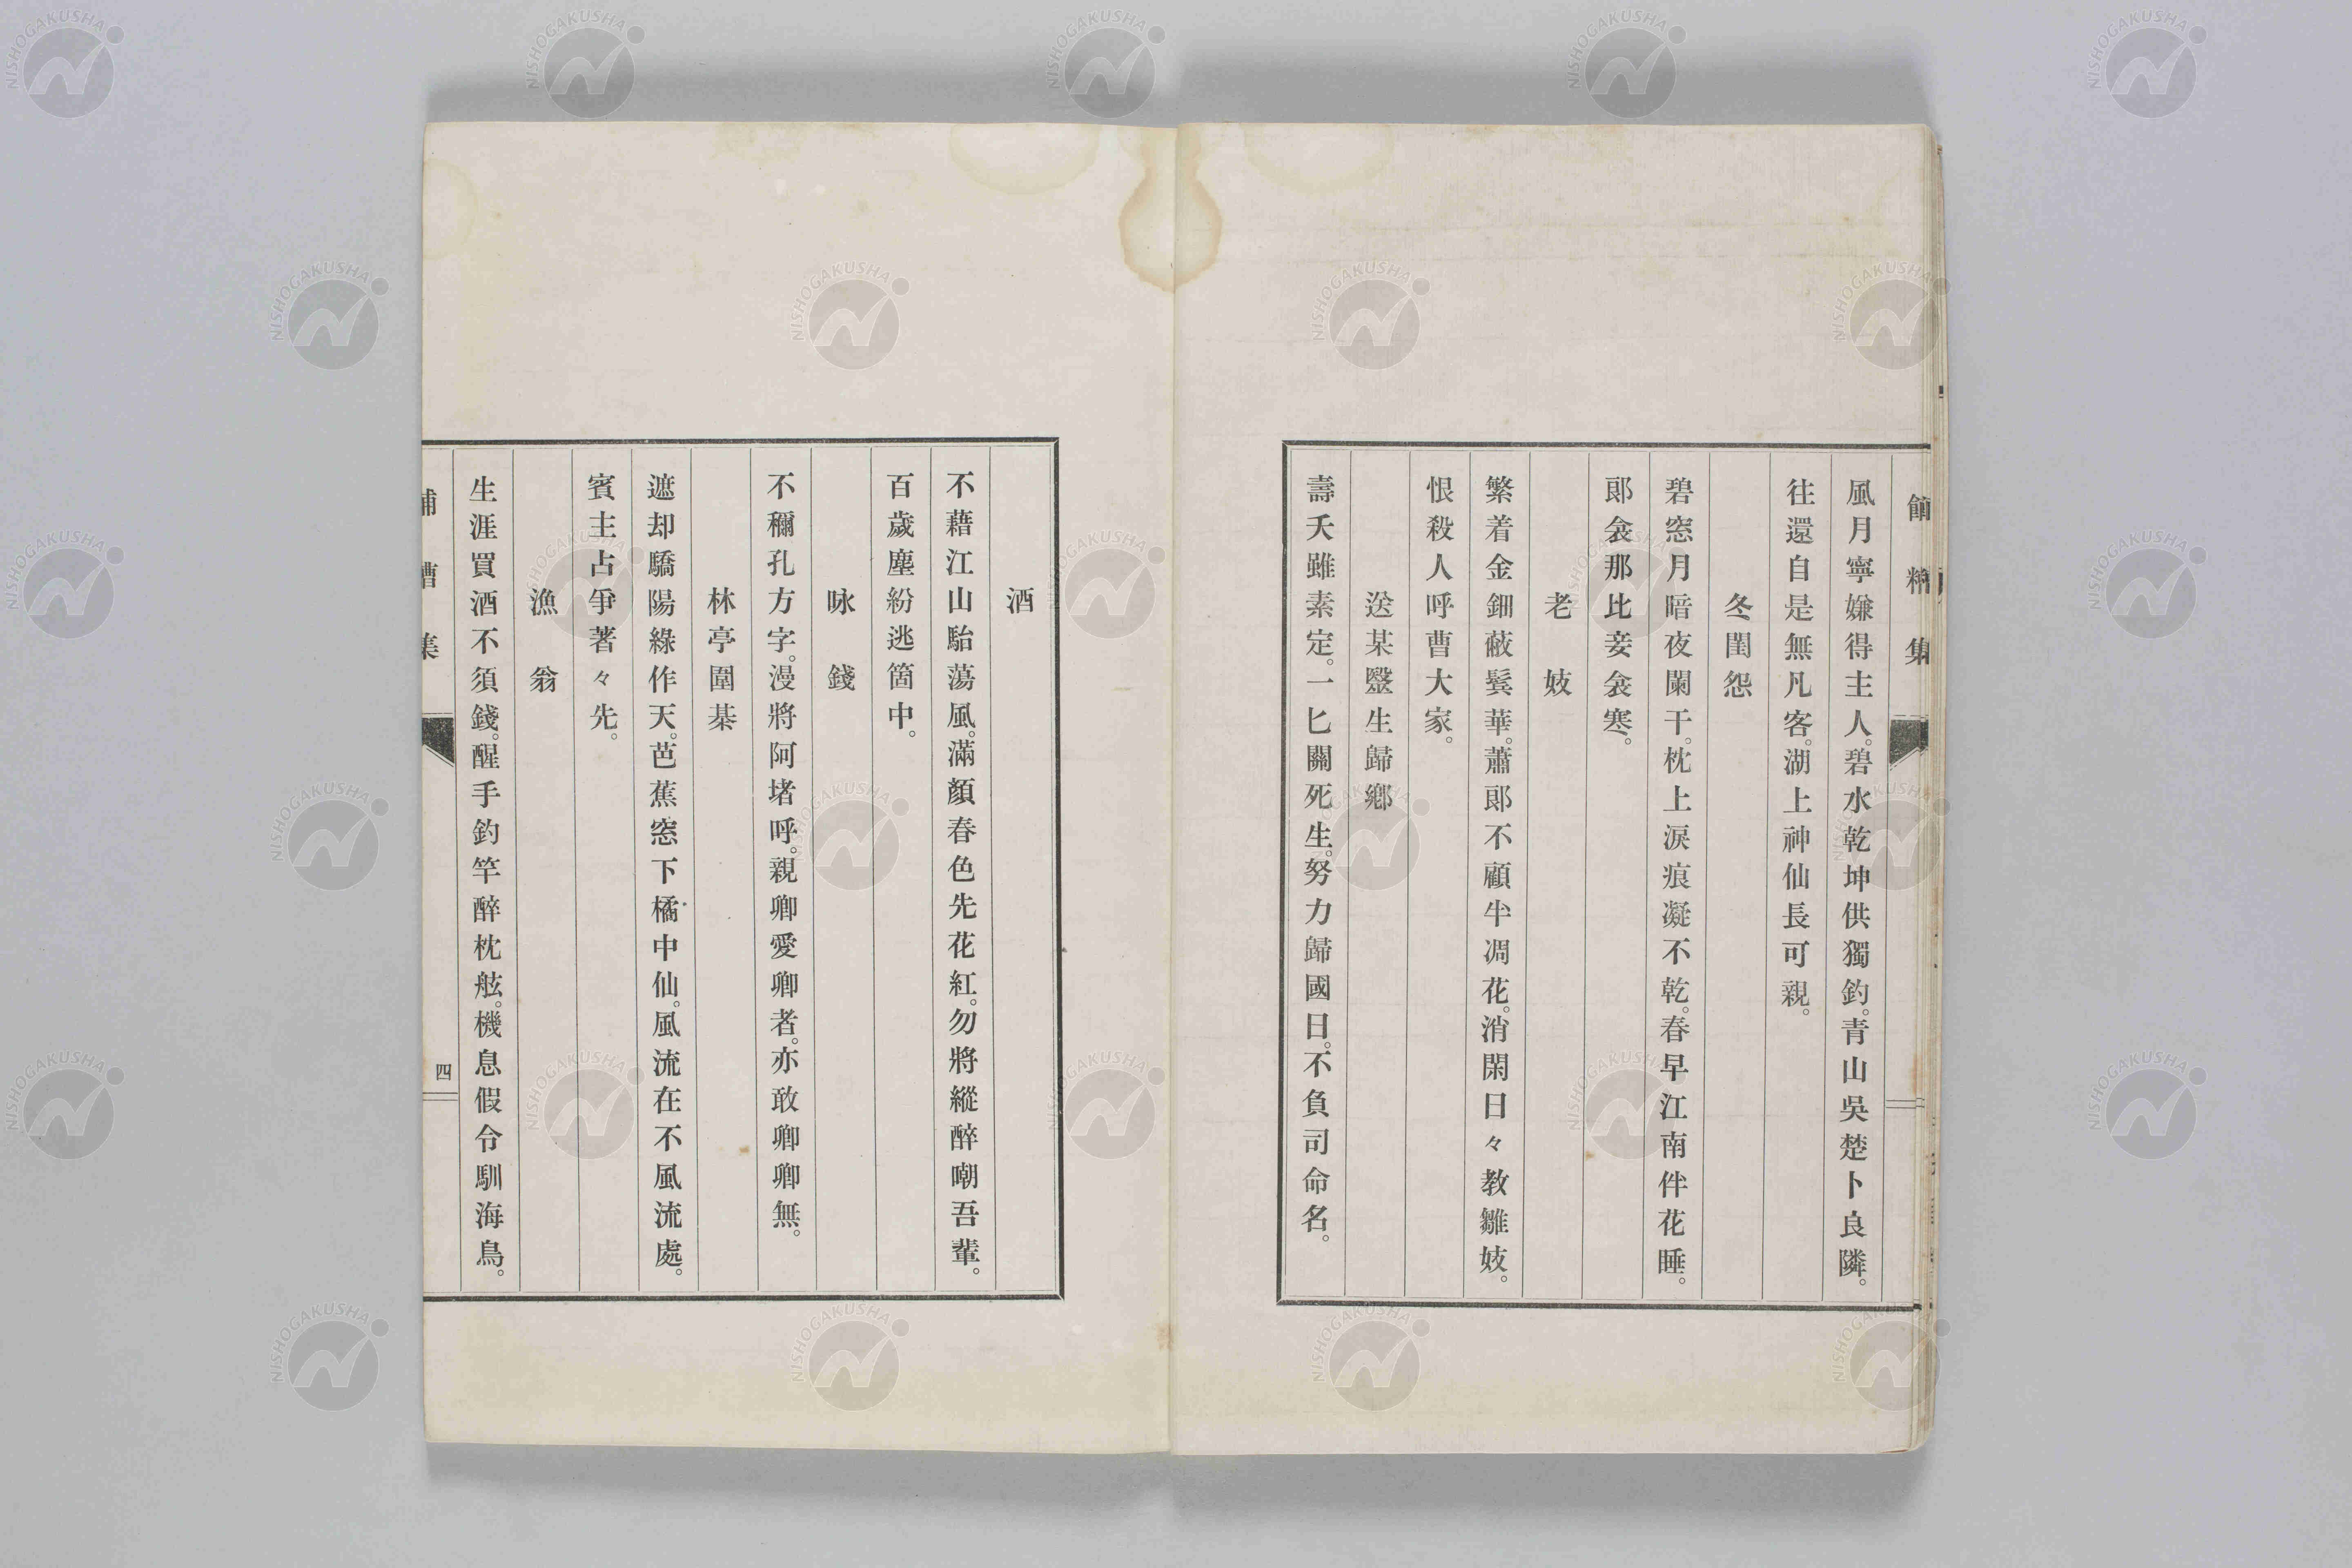 風月寧嫌得主人。碧水乾坤供獨釣。青山吳楚卜良隣。
往還自是無凡客。湖上神仙長可親。
冬閨怨
碧窓月暗夜闌干。枕上涙痕凝不乾。春早江南伴花睡。
郞衾那比妾衾寒。
老妓
繁着金鈿蔽鬂華。蕭郞不顧半凋花。消閑日々敎雛妓。
恨殺人呼曹大家。
送某毉生歸鄕
壽夭雖素定。一匕關死生。努力歸國日。不負司命名。
酒
不藉江山駘蕩風。滿顏春色先花紅。勿將縱醉嘲吾輩。
百歲塵紛逃箇中。
咏錢
不稱孔方字。漫將阿堵呼。親卿愛卿者。亦敢卿卿無。
林亭圍棊
遮却驕陽綠作天。芭蕉窓下橘中仙。風流在不風流處。
賓主占爭著々先。
漁翁
生涯買酒不須錢。醒手釣竿醉枕舷。機息假令馴海鳥。
集
四
NISHOGAKUSHA